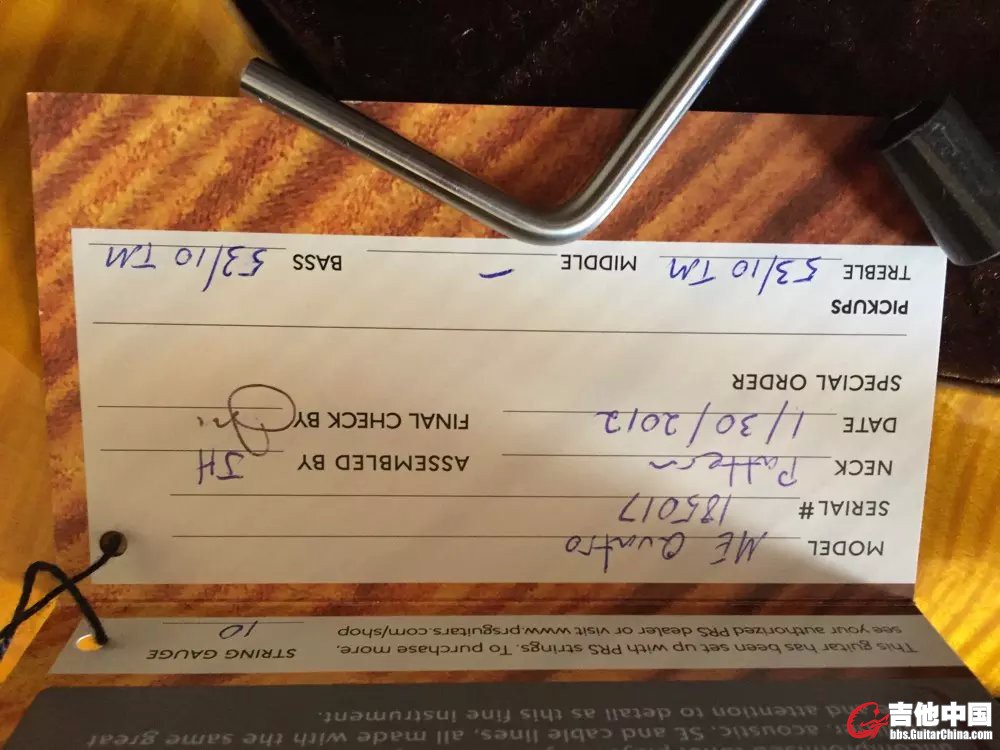 acoustic, SE and cable lines, all made with the same great
and attention to detail as this fine instrument.
This guitar has been set up with PRS strings. To purchase more,
see your authorized PRS dealer or visit www.prsguitars.com/shop
STRING GAUGE 10
MODEL ME Quatro
SERIAL# 185017
NECK Pattern ASSEMBLED BY JH
DATE 1/30/2012 FINAL CHECK BY
SPECIAL ORDER
PICKUPS
TREBLE 53/10 TM MIDDLE – BASS 53/10 TM
吉他中国
bbs.GuitarChina.com